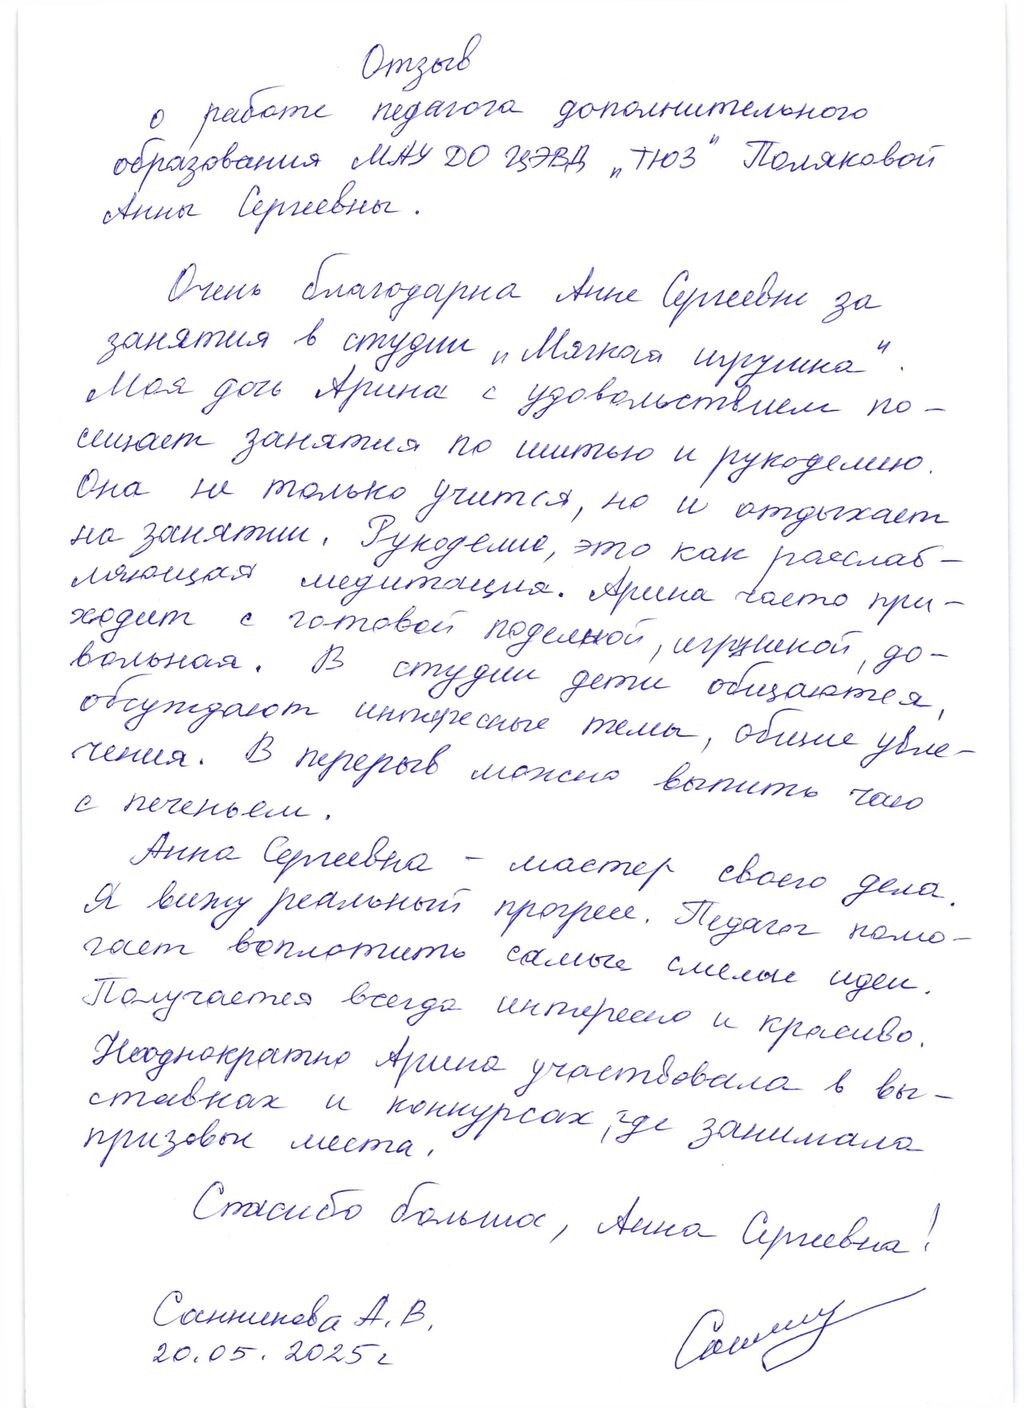 Отзыв
о работе педагога дополнительного
образования МАУ ДО ЦЭВД „ТЮЗ" Поляковой
Анны Сергеевны.
Очень благодарна Анне Сергеевне за
занятия в студии „Мягкая игрушка".
Моя дочь Арина с удовольствием по-
сещает занятия по шитью и рукоделию.
Она не только учится, но и отдыхает
на занятии. Рукоделие, это как расслаб-
ляющая медитация. Арина часто при-
ходит с готовой поделкой, игрушкой, до-
вольная. В студии дети общаются,
обсуждают интересные темы, общие увле-
чения. В перерыв можно выпить чаю
с печеньем.
Анна Сергеевна – мастер своего дела.
Я вижу реальный прогресс. Педагог помо-
гает воплотить самые смелые идеи.
Получается всегда интересно и красиво.
Неоднократно Арина участвовала в вы-
ставках и конкурсах, где занимала
призовые места.
Спасибо большое, Анна Сергеевна!
Санникова А.В.
20.05.2025г